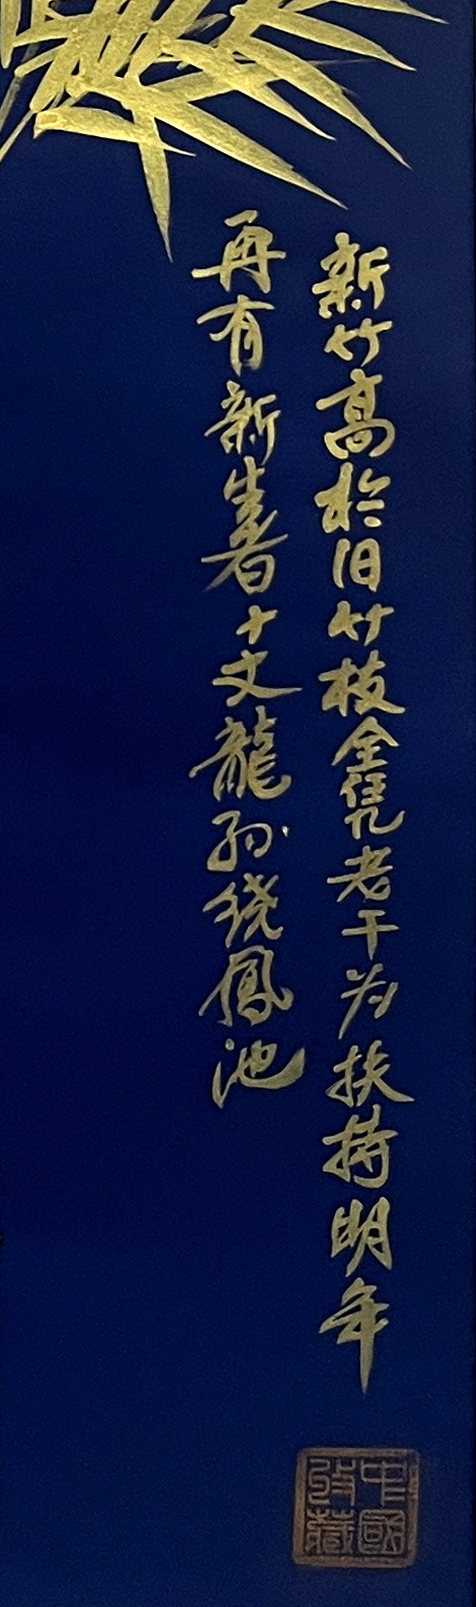 新竹高於旧竹枝全凭老干为扶持明年
再有新生者十丈龍孙绕鳳池
中國
收藏